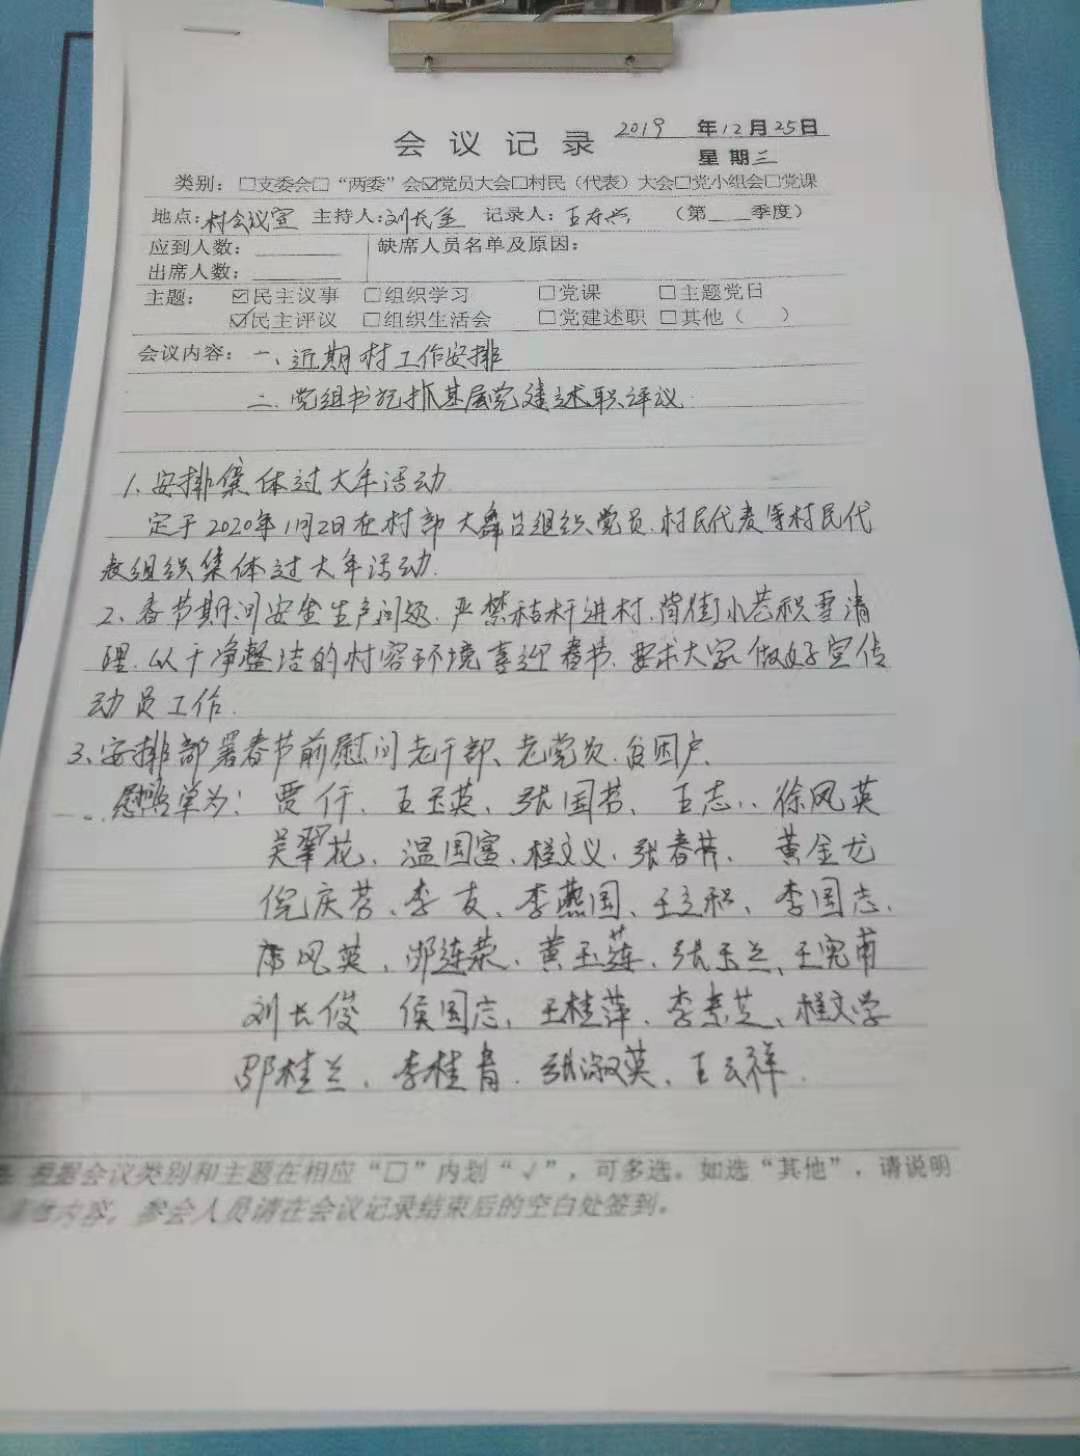 会议记录 2019 年12月25日
星期三
类别：□支委会□“两委”会☑党员大会□村民（代表）大会□党小组会□党课
地点:村会议室 主持人:刘长金 记录人:王 （第 季度）
应到人数： 缺席人员名单及原因：
出席人数：
主题： ☑民主议事 □组织学习 □党课 □主题党日
☑民主评议 □组织生活会 □党建述职 □其他（ ）
会议内容：一、近期村工作安排
二、党组书记抓基层党建述职评议
1、安排集体过大年活动
定于2020年1月2日在村部大舞台组织党员、村民代表等村民代
表组织集体过大年活动.
2、春节期间安全生产问题.严禁秸秆进村,背街小巷积雪清
理.以干净整洁的村容环境喜迎春节.要求大家做好宣传
动员工作.
3、安排部署春节前慰问老干部、老党员、贫困户、
慰 单为: 贾仟、王玉英、张国芳、王志、徐凤英
吴翠花、温国富、程文义、张春芳、黄金龙
倪庆芳、李友、李燕国、王立积、李国志、
席凤英、邢连荣、黄玉莲、张玉兰、王宪甫
刘长俊 侯国志、王桂萍、李素芝、程文学
邬桂兰、李桂青、张淑英、王云祥.
根据会议类别和主题在相应“□”内划“√”，可多选。如选“其他”，请说明
内容。参会人员请在会议记录结束后的空白处签到。